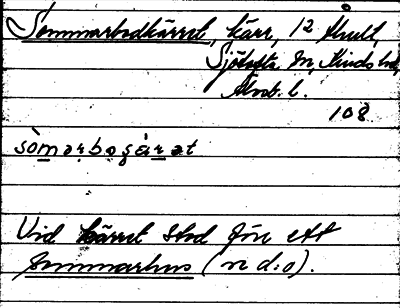 Sommarbodkärret, kärr, 12 Åhult,
Sjötofta sn, Kinds hd,
Älvsb. l.
108
Vid kärret stod förr ett
sommarhus (nr d:o).